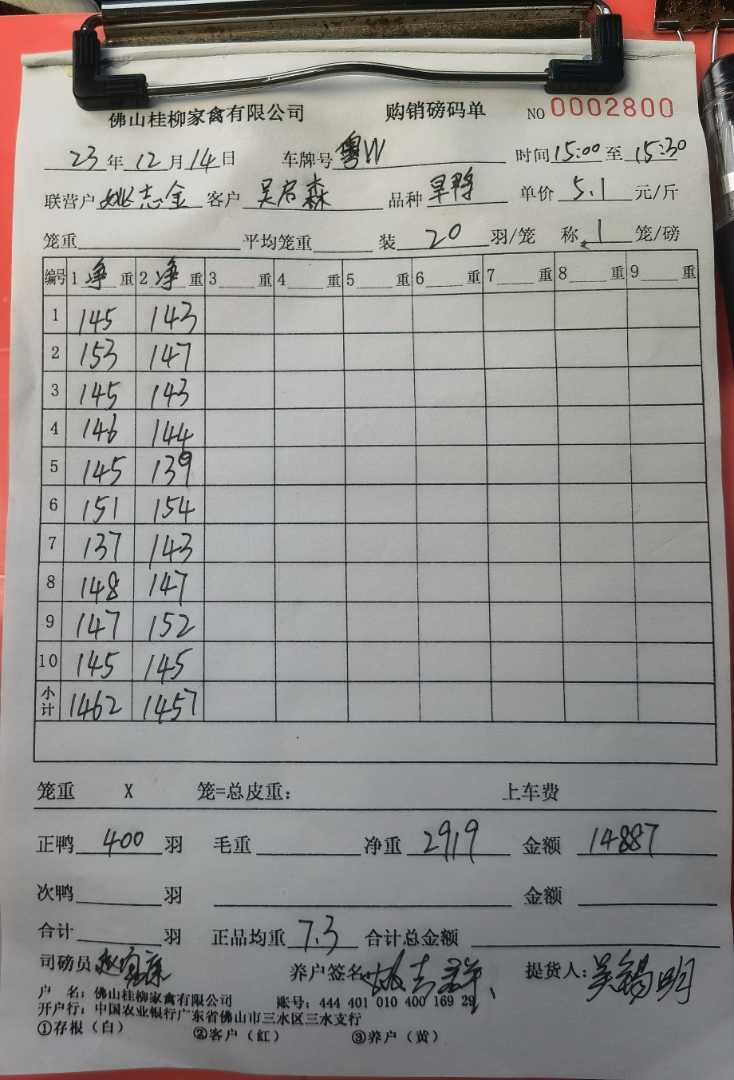 佛山桂柳家禽有限公司 购销磅码单 NO 0002800
23年12月14日 车牌号 粤W 时间 15:00 至 15:30
联营户 姚志金 客户 吴启森 品种 旱鸭 单价 5.1 元/斤
笼重 平均笼重 装 20 羽/笼 称 1 笼/磅
编号 1 净 重 2 净 重 3 重 4 重 5 重 6 重 7 重 8 重 9 重
1 145 143
2 153 147
3 145 143
4 146 144
5 145 139
6 151 154
7 137 143
8 148 147
9 147 152
10 145 145
小计 1462 1457
笼重 X 笼=总皮重: 上车费
正鸭 400 羽 毛重 净重 2919 金额 14887
次鸭 羽 金额
合计 羽 正品均重 7.3 合计总金额
司磅员 养户签名 提货人: 吴锡明
户 名: 佛山桂柳家禽有限公司 账号: 444 401 010 400 169 29
开户行: 中国农业银行广东省佛山市三水区三水支行
①存根(白) ②客户(红) ③养户(黄)